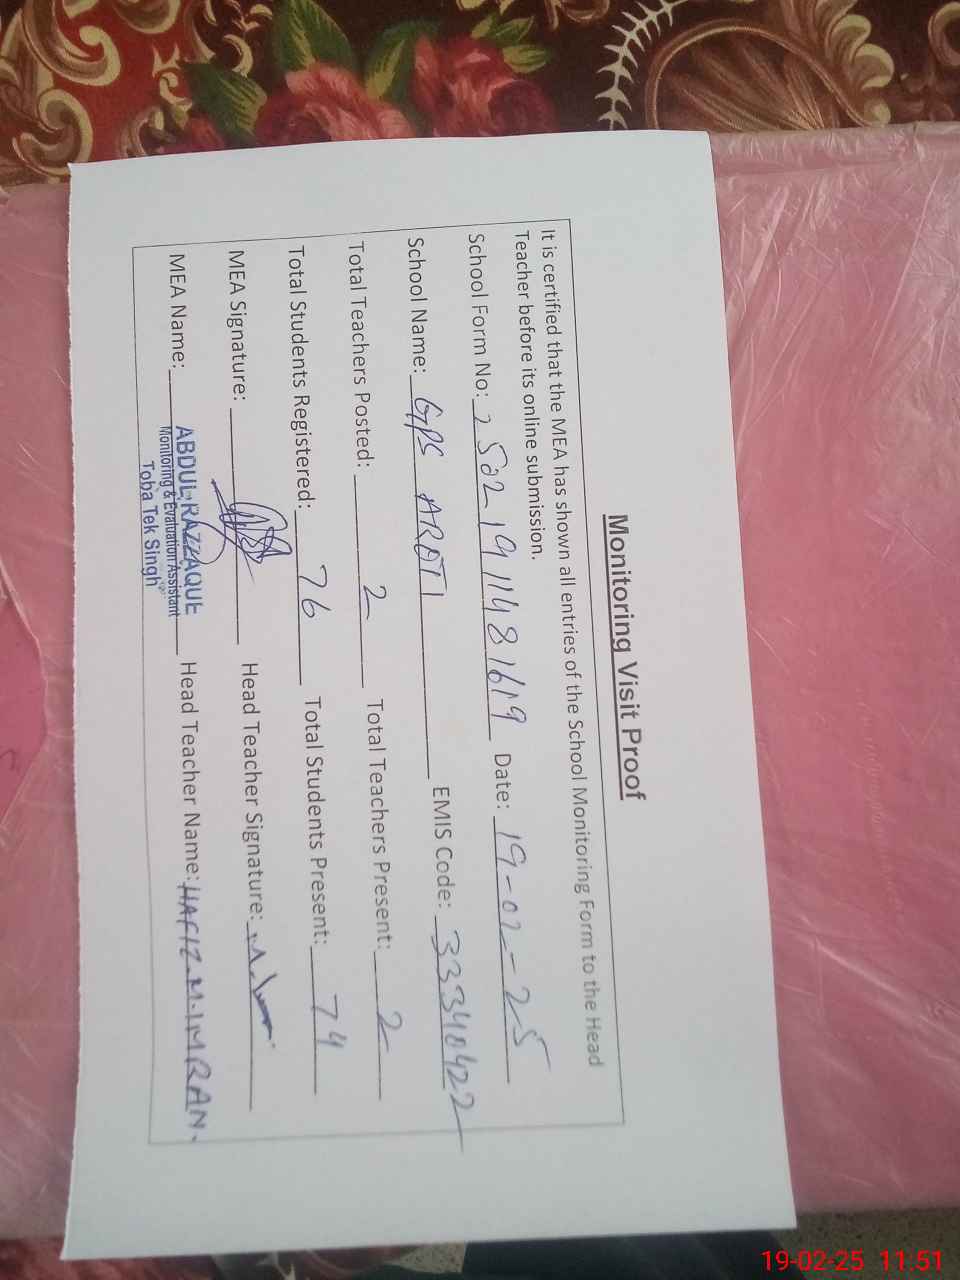 Monitoring Visit Proof
It is certified that the MEA has shown all entries of the School Monitoring Form to the Head
Teacher before its online submission.
School Form No: 25021911481619 Date: 19-02-25
School Name: GPS AROTI EMIS Code: 33340422
Total Teachers Posted: 2 Total Teachers Present: 2
Total Students Registered: 76 Total Students Present: 74
MEA Signature: Head Teacher Signature:
MEA Name: ABDUL RAZZAQUE Head Teacher Name: HAFIZ M. IMRAN.
Monitoring & Evaluation Assistant
Toba Tek Singh
19-02-25 11:51